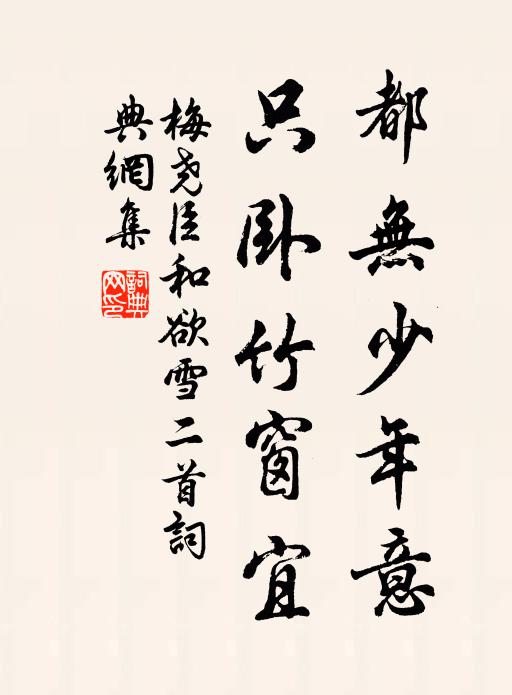 都無少年意
只卧竹窗宜
梅尧臣和欲雪二首詞
典網集
詞典网印